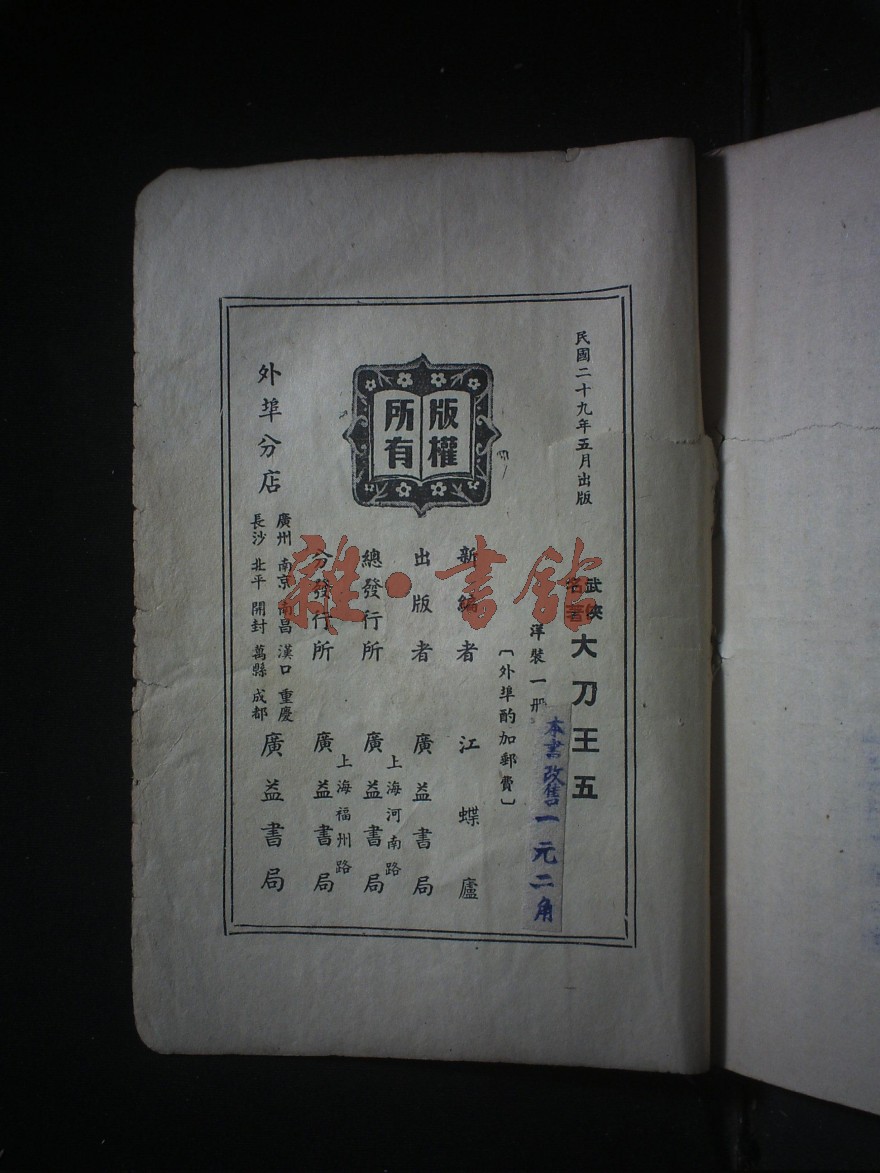 民國二十九年五月出版
武俠名著 大刀王五
洋裝一册
本書改售一元二角
〔外埠酌加郵費〕
版權
所有
新編者 江蝶廬
出版者 廣益書局
總發行所 上海河南路 廣益書局
分發行所 上海福州路 廣益書局
外埠分店
廣州 南京 南昌 漢口 重慶
長沙 北平 開封 萬縣 成都
廣益書局
雜·書館